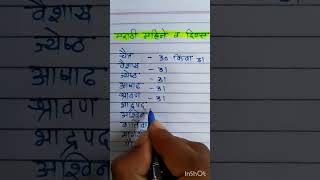 मराठी महिने व दिवस
चैत्र - 30 किंवा 31
वैशाख - 31
ज्येष्ठ - 31
आषाढ - 31
श्रावण - 31
भाद्रपद
अश्विन
कार्तिक
वैशाख
ज्येष्ठ
आषाढ
श्रावण
भाद्रपद
अश्विन
InShOt